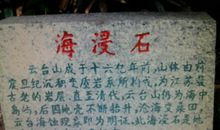 海浸石
云台山成于十六亿年前,山体由前
震旦纪沉积变质岩系所构成,为江苏最
古老的岩层,直至清代,云台山仍为海中岛
屿,后因地壳不断抬升,沧海变桑田
云台海蚀现象即为明证,此海浸石是地